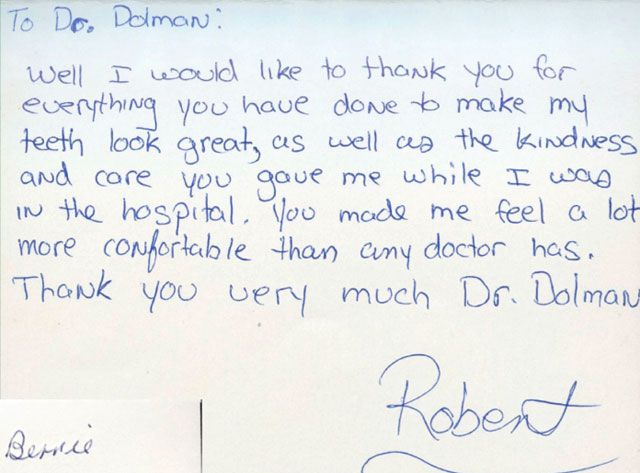 To Dr. Dolman:
Well I would like to thank you for
everything you have done to make my
teeth look great, as well as the kindness
and care you gave me while I was
in the hospital. You made me feel a lot
more confortable than any doctor has.
Thank you very much Dr. Dolman
Robert
Bernie